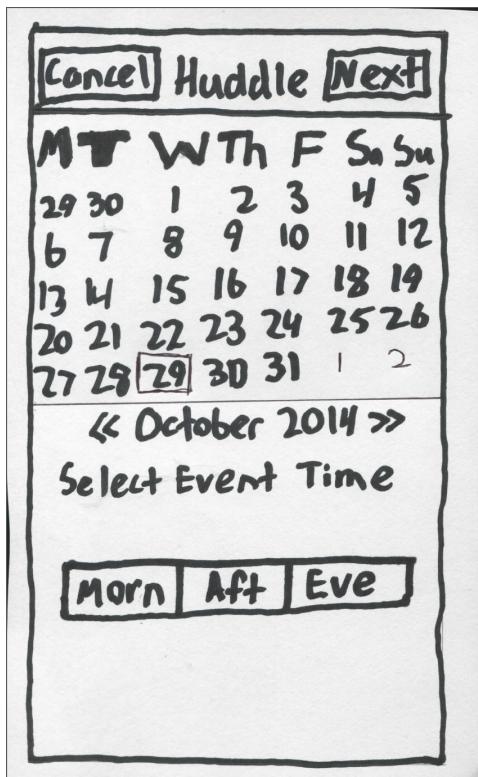 Cancel Huddle Next
M T W Th F Sa Su
29 30 1 2 3 4 5
6 7 8 9 10 11 12
13 14 15 16 17 18 19
20 21 22 23 24 25 26
27 28 29 30 31 1 2
« October 2014 »
Select Event Time
Morn Aft Eve